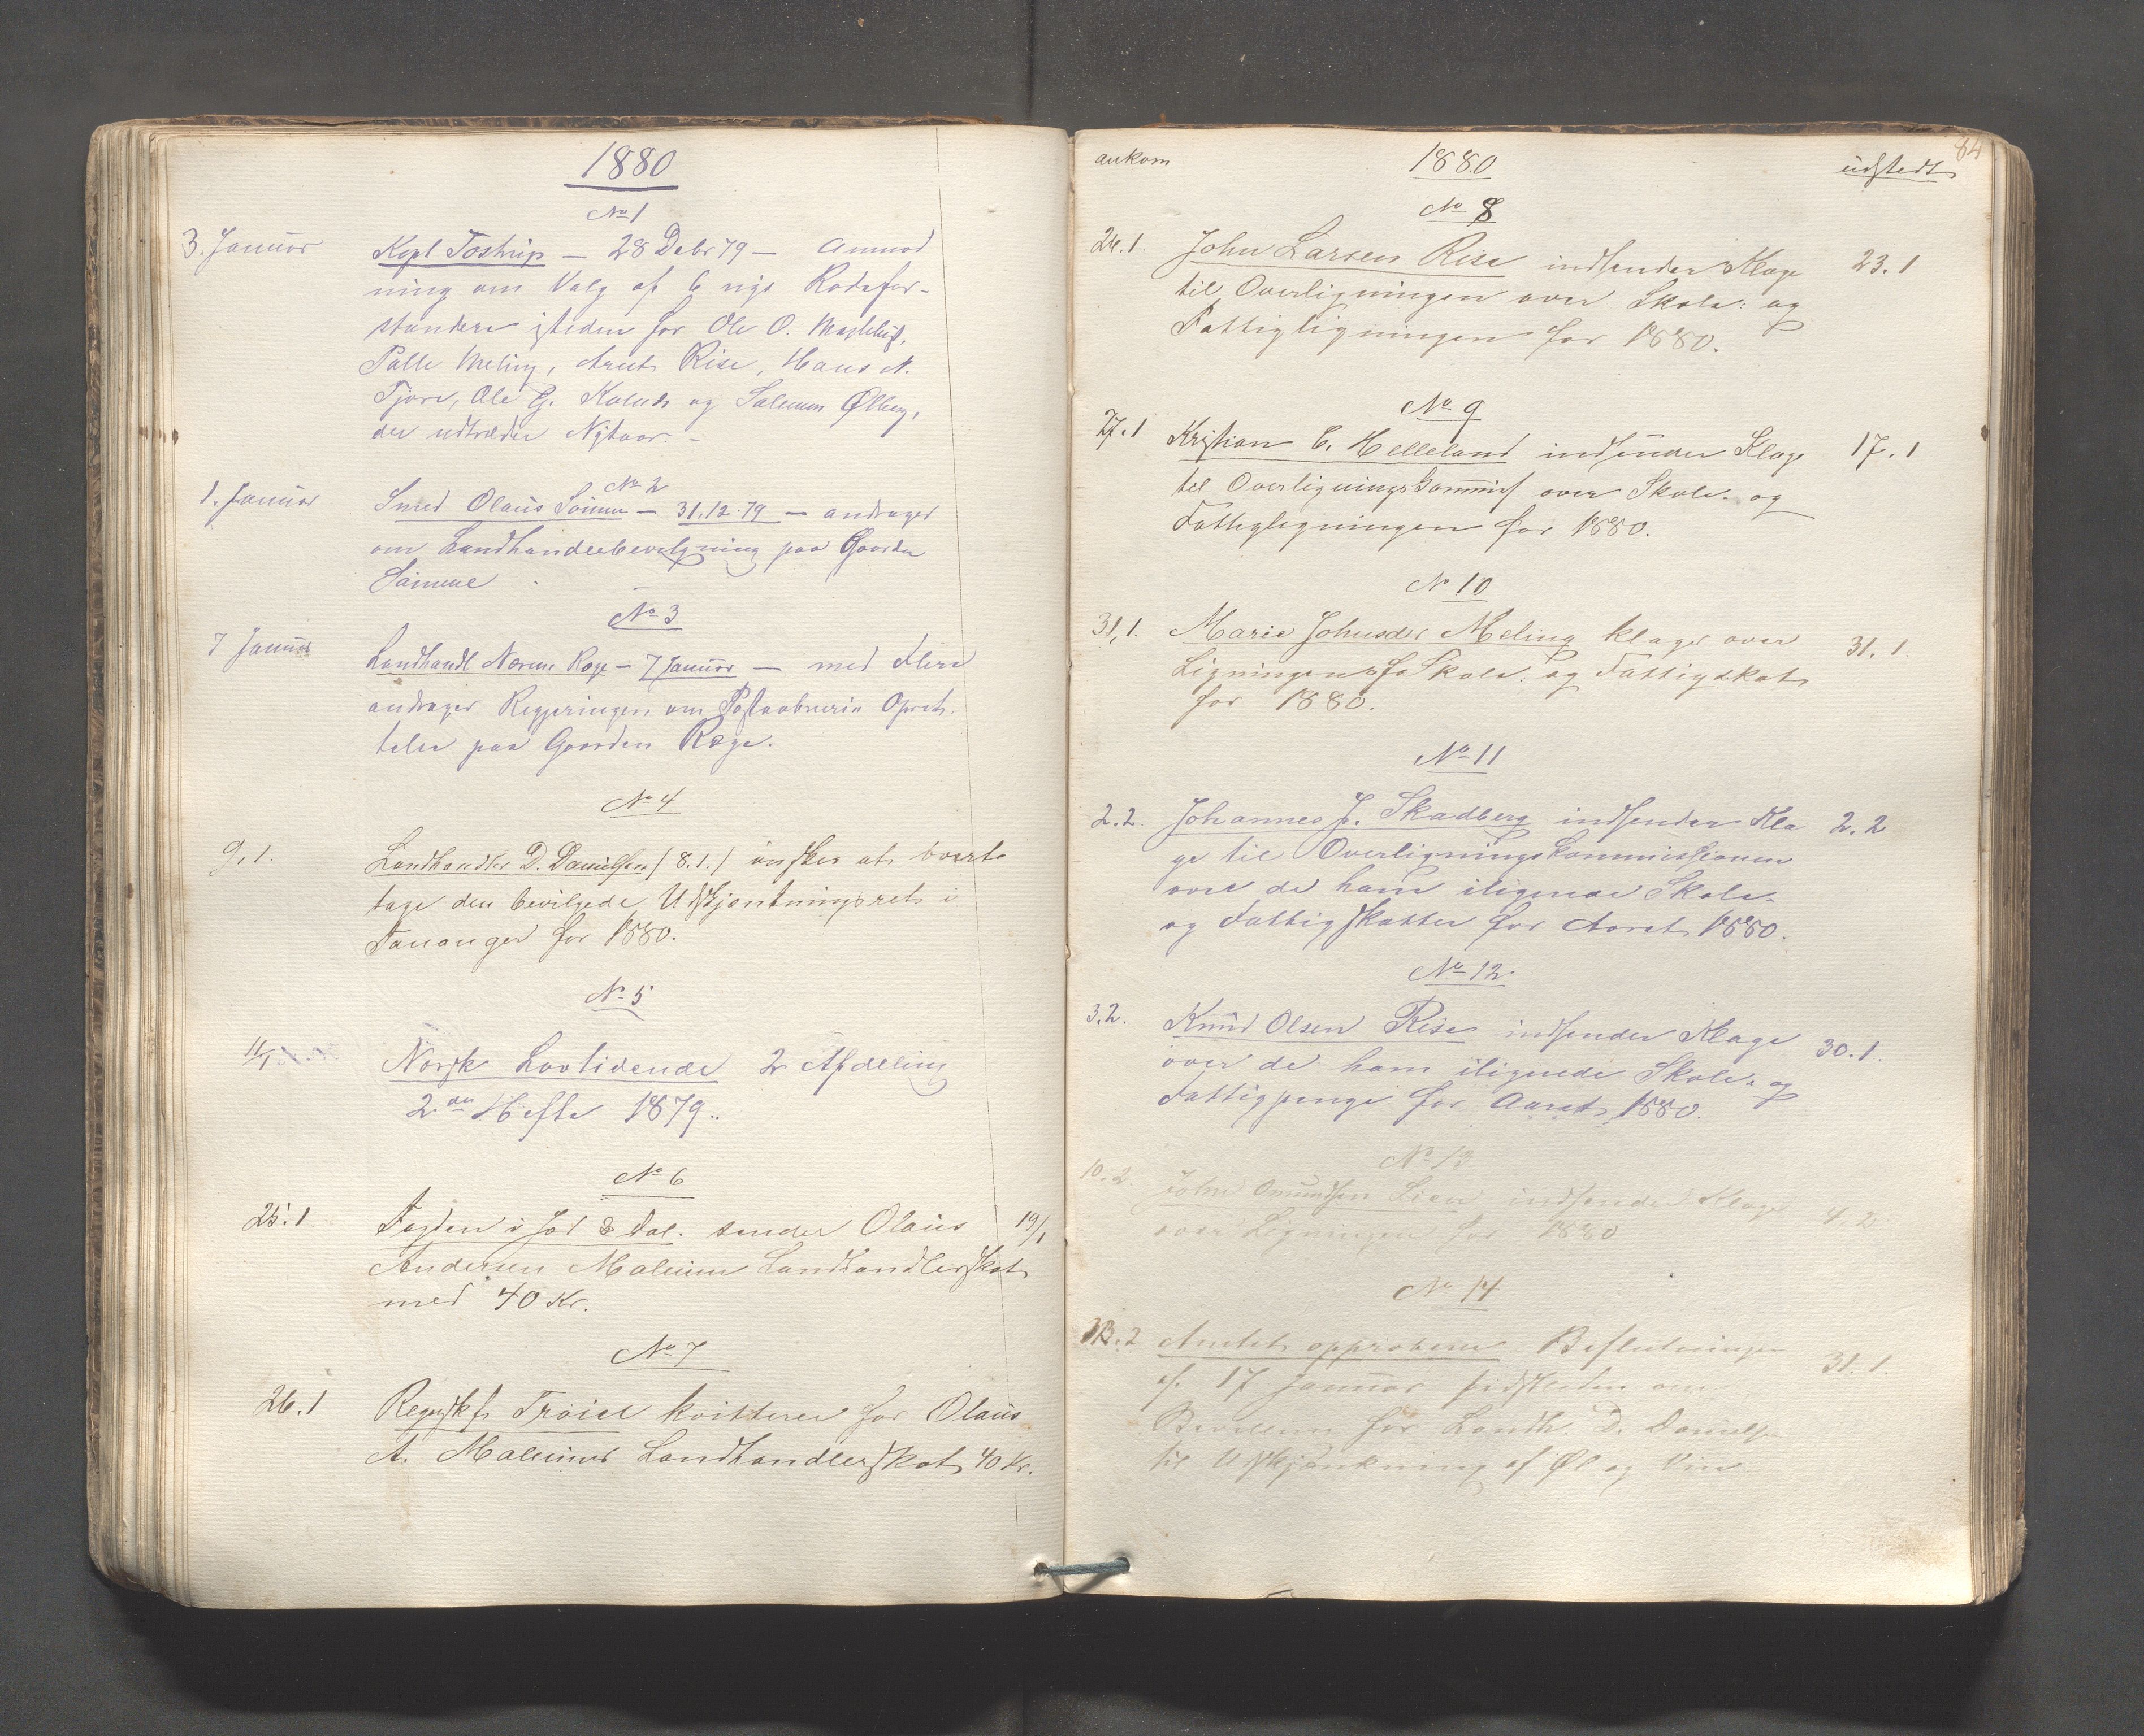 1880
No 1
3. Januar Kapt Tostrup — 28 Debr 79 — Anmod
ning om Valg af 6 nye Rodefor-
standere isteden for Ole O.
Palle Meling, Arnt Rise, Hans N.
Tjora, Ole G. og Salemon Ølberg,
der udtræder Nytaar. –
No 2
1. Januar Smed Olaus Sömme — 31.12.79 — andrager
om Landhandlebevilgning paa Gaarden
Sömme
No 3
7 Januar Landhandl Næsem Rege – 7 Januar — med Flere
andrager Regjeringen om Postaabneriets Opret-
telse paa Gaarden Rege.
No 4
9.1. Landhandler D. Danielsen (8.1.) önsker at bort
tage den bevilgede Udskjænkningsret i
Tananger for 1880.
No 5
11/1 Norsk Lovtidende 2 Afdeling
2den Hefte 1879.
No 6
25.1 Fogden i Jæd & Dal. sender Olaus 19/1
Andersen Maleims Landhandlerskat
med 40 Kr.
No 7
26.1 Regnskf Troiel kvitterer for Olaus
A. Maleims Landhandlerskat 40 Kr.
84
ankom 1880 udstedt
No 8
24.1. John Larsen Rise indsender Klage 23.1
til Overligningen over Skole- og
Fattigligningen for 1880.
No 9
27.1 Kristian C. Helleland indsender Klage 17.1
til Overligningskommiss over Skole- og
Fattigligningen for 1880.
N 10
31.1. Marie Johnsdr Meling klager over 31.1.
Ligningen af Skole- og Fattigskat
for 1880.
No 11
2.2. Johannes J. Skadberg indsender Kla 2.2
ge til Overligningskommissionen
over de ham ilignede Skole-
og Fattigskatter for Aaret 1880.
No 12
3.2. Knud Olsen Rise indsender Klage 30.1.
over de ham ilignede Skole- og
Fattigpenge for Aaret 1880.
No 13
10.2. John Omundsen Lien indsender Klage 4.2
over Ligningen for 1880
No 14
13.2 Amtet approberer Beslutningen 31.1.
af 17 Januar sidstleden om
for Landh. D. Danielsen
til Udskjænkning af Øl og Vin.